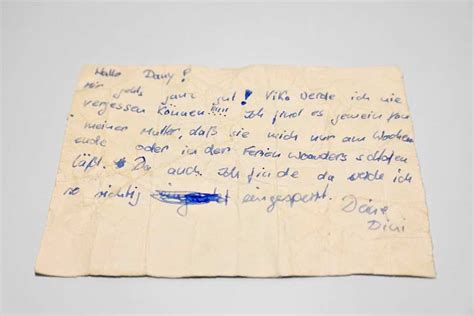 Hallo Dany!
Mir gehts ganz gut! Viko werde ich nie
vergessen können!!!! Ich find es gemein von
meiner Mutter, daß sie mich nur am Wochen
ende oder in den Ferien woanders schlafen
läßt. Du auch. Ich finde da werde ich
so richtig eingesperrt.
Deine
Dini